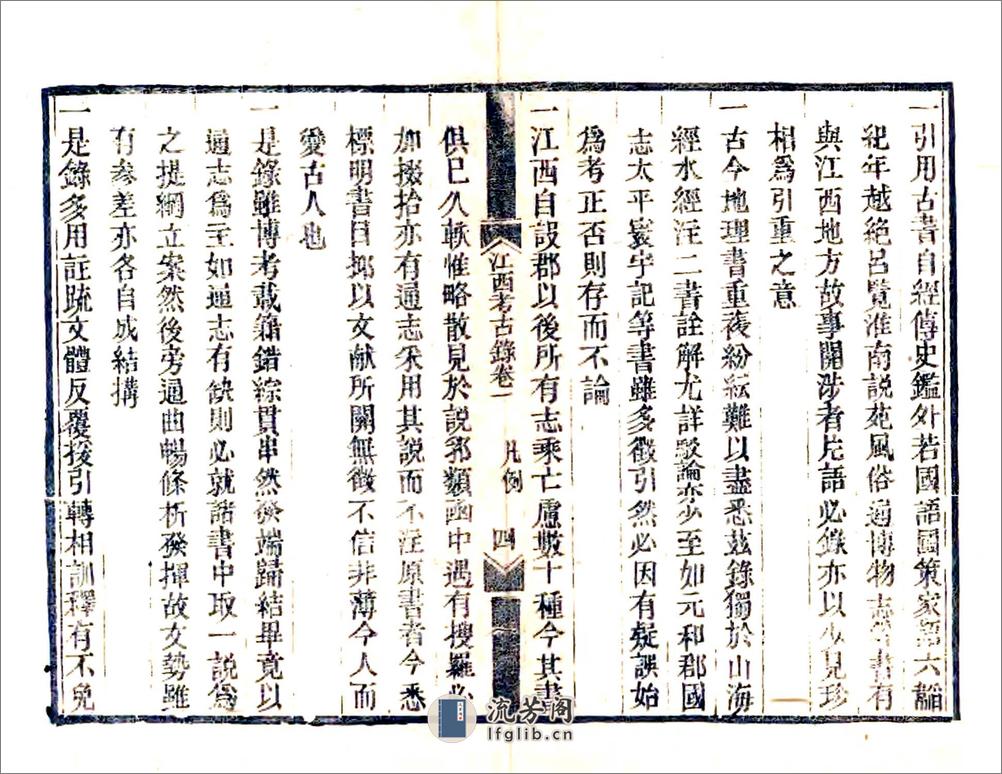 一引用古書自經傳史鑑外若國語國策家語六韜
紀年越絕呂覽淮南說苑風俗通博物志諸書有
與江西地方故事關涉者片語必錄亦以少見珍
相爲引重之意
一古今地理書重複紛紜難以盡悉茲錄獨於山海
經水經注二書詮解尤詳駁論亦少至如元和郡國
志太平寰宇記等書雖多徵引然必因有疑誤始
爲考正否則存而不論
江西考古錄卷一 凡例 四
一江西自設郡以後所有志乘亡慮數十種今其書
俱已久軼惟略散見於說郛類函中遇有搜羅必
加掇拾亦有通志采用其說而不注原書者今悉
標明書目抑以文獻所關無徵不信非薄今人而
愛古人也
一是錄雖博考載籍錯綜貫串然發端歸結畢竟以
通志爲主如通志有缺則必就諸書中取一說爲
之提綱立案然後旁通曲暢條析發揮故文勢雖
有參差亦各自成結搆
一是錄多用註疏文體反覆援引轉相訓釋有不免
流芳阁
lfglib.cn